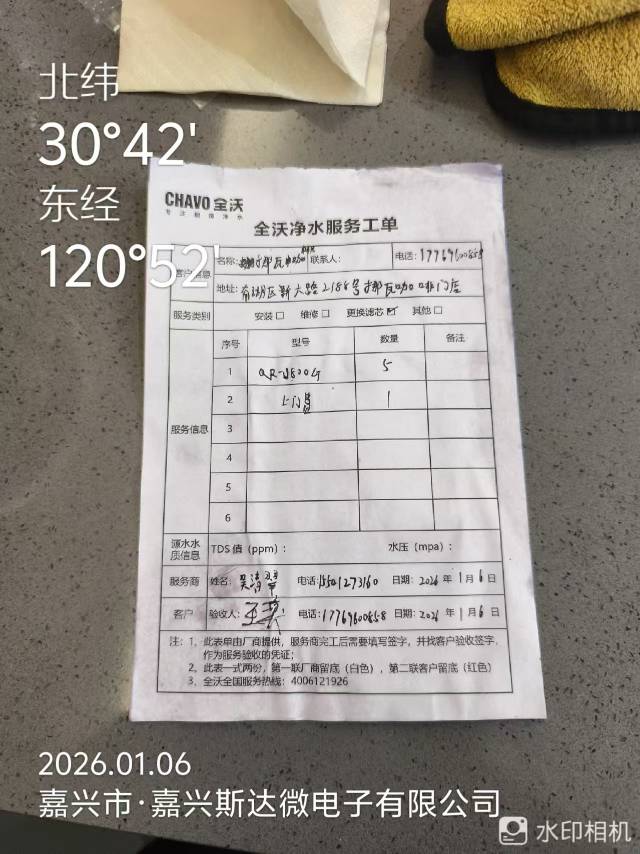 北纬
30°42'
东经
120°52'
CHAVO 全沃
专注粗质净水
全沃净水服务工单
客户信息
名称: 挪瓦咖啡 联系人: 电话: 17769600858
地址: 南湖区新大路2188号挪瓦咖啡门店
服务类别 安装□ 维修□ 更换滤芯☑ 其他□
服务信息
序号 型号 数量 备注
1 5
2 上门费 1
3
4
5
6
源水水质信息 TDS 值（ppm）: 水压（mpa）:
服务商 姓名: 电话: 15501273160 日期: 2026 年 1 月 6 日
客户 验收人: 电话: 17769600858 日期: 2026 年 1 月 6 日
注: 1、此表单由厂商提供，服务商完工后需要填写签字，并找客户验收签字，
作为服务验收的凭证;
2、此表一式两份，第一联厂商留底（白色），第二联客户留底（红色）
3、全沃全国服务热线: 4006121926
2026.01.06
嘉兴市·嘉兴斯达微电子有限公司
水印相机